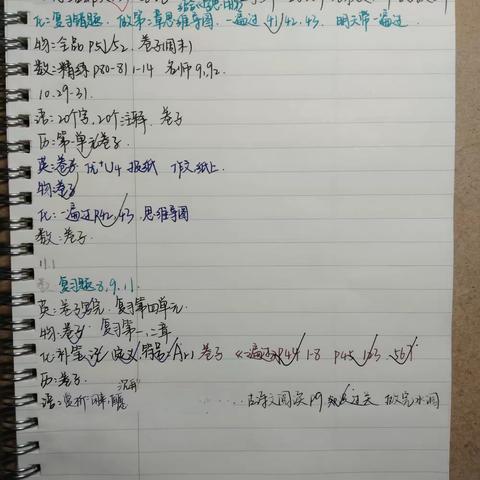 化:复习错题,做第二章思维导图,一遍过 41,42,43. 明天带一遍过
物:全品 P51,52. 卷子(周末)
数:精练 P80-81 1-14 名师 91,92.
10.29-31.
语:20个字,20个注释,卷子
历:第一单元卷子.
英:卷子 优+U4 报纸 作文纸上.
物:卷子
化:一遍过P42,43,思维导图
数:卷子.
11.1
复习题 8.9.11.
英:卷子写完,复习第四单元.
物:卷子 复习第一,二章
化:补笔记 卷子 一遍过P44 1-8 P45 56
历:卷子.
语: 古诗文阅读 P9 过关 做完